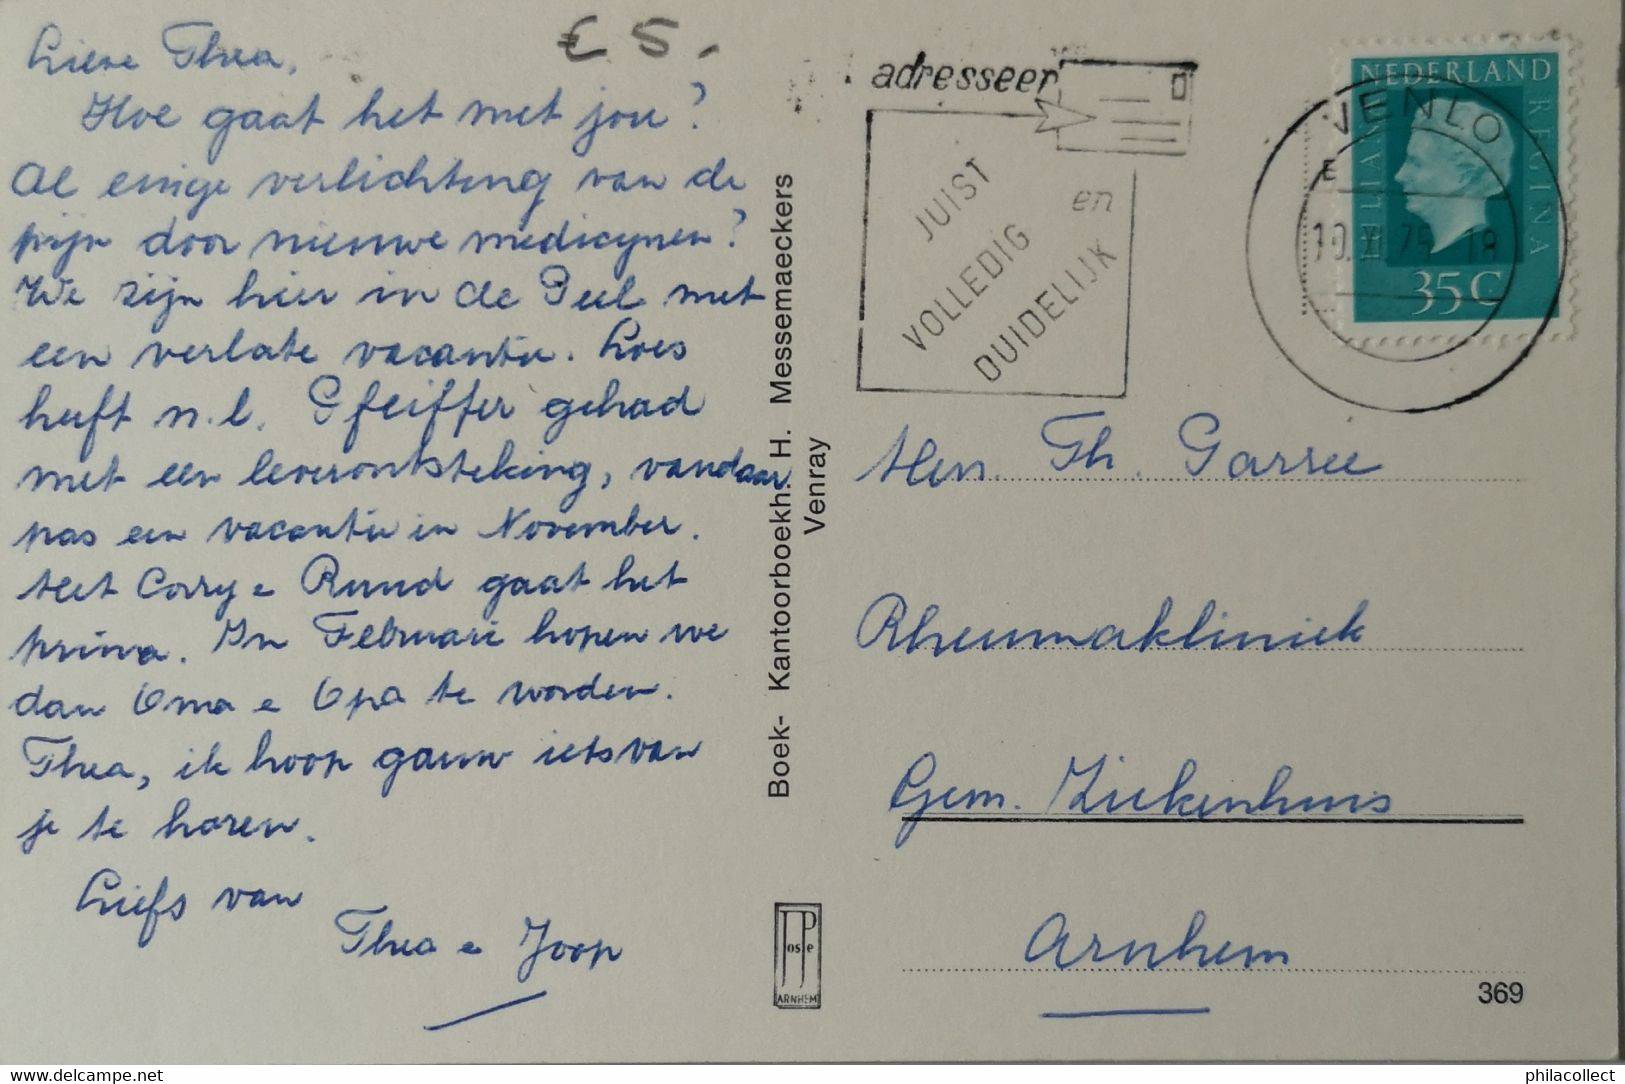 Lieve Thea,
Hoe gaat het met jou?
Al enige verlichting van de
pijn door nieuwe medicijnen?
We zijn hier in de Peel met
een verlate vacantie. Loes
heeft n.l. Pfeiffer gehad
met een leverontsteking, vandaar
pas een vacantie in November.
Met Corry e Ruud gaat het
prima. In Februari hopen we
dan Oma e Opa te worden.
Thea, ik hoop gauw iets van
je te horen.
Liefs van
Thea e Joop
€ 5,-
Boek- Kantoorboekh. H. Messemaeckers
Venray
JosPe
ARNHEM
adresseer
JUIST
VOLLEDIG
en
DUIDELIJK
NEDERLAND
WILLIAM
REGINA
35 C
VENLO
E
10.XI.75 18
Mevr. Th. Garree
Rheumakliniek
Gem. Ziekenhuis
Arnhem
369
www.delcampe.net
philacollect